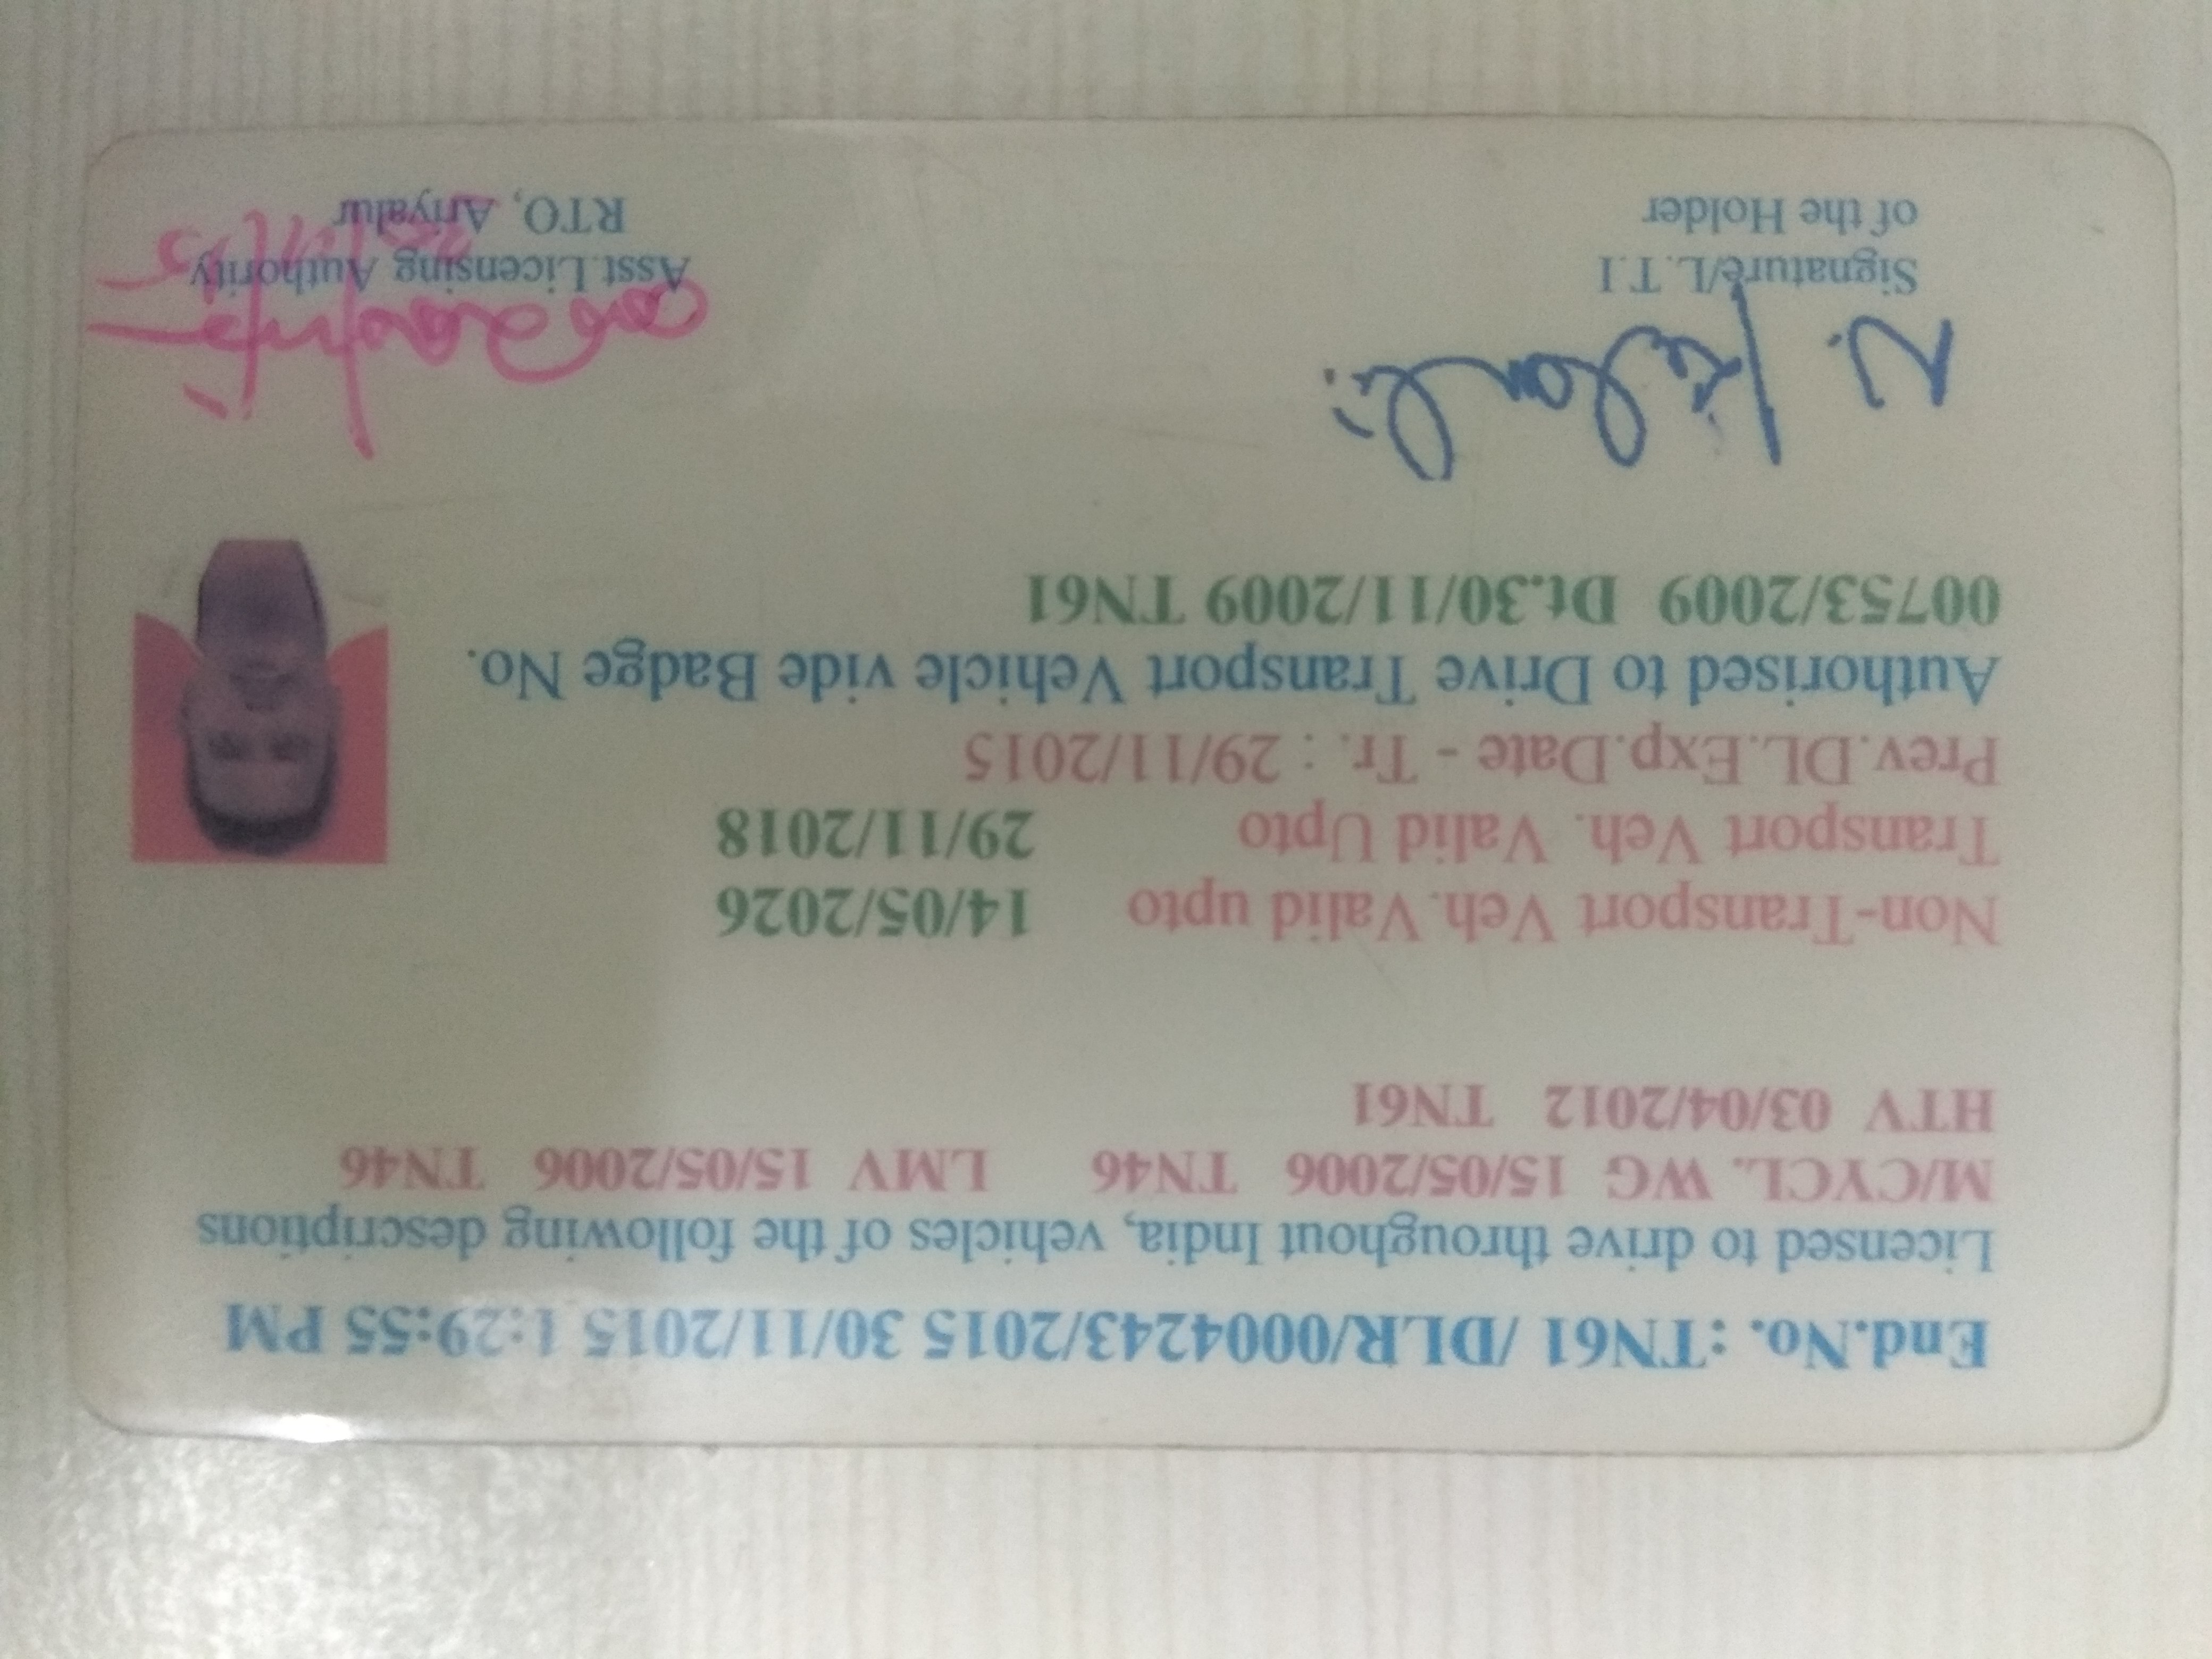 End.No. :TN61 /DLR/0004243/2015 30/11/2015 1:29:55 PM
Licensed to drive throughout India, vehicles of the following descriptions
M/CYCL. WG 15/05/2006 TN46 LMV 15/05/2006 TN46
HTV 03/04/2012 TN61
Non-Transport Veh.Valid upto 14/05/2026
Transport Veh. Valid Upto 29/11/2018
Prev.DL.Exp.Date - Tr. : 29/11/2015
Authorised to Drive Transport Vehicle vide Badge No.
00753/2009 Dt.30/11/2009 TN61
N.
Signature/L.T.I
of the Holder
Asst.Licensing Authority
RTO, Ariyalur